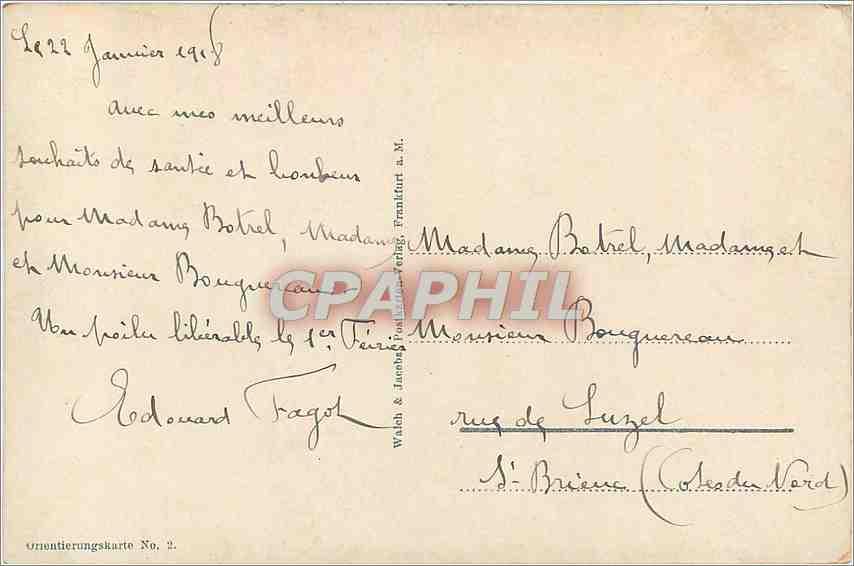 Le 22 Janvier 1918
avec mes meilleurs
souhaits de santée et bonheur
pour Madame Botrel, Madame
et Monsieur Bouguereau
Un poilu libérable le 1er Février
Edouard Fagot
Walch & Jacobs, Postkarten-Verlag, Frankfurt a. M.
Madame Botrel, Madame et
Monsieur Bouguereau
rue de Luzel
St- Brieuc (Cotes du Nord)
Orientierungskarte No. 2.
CPAPHIL